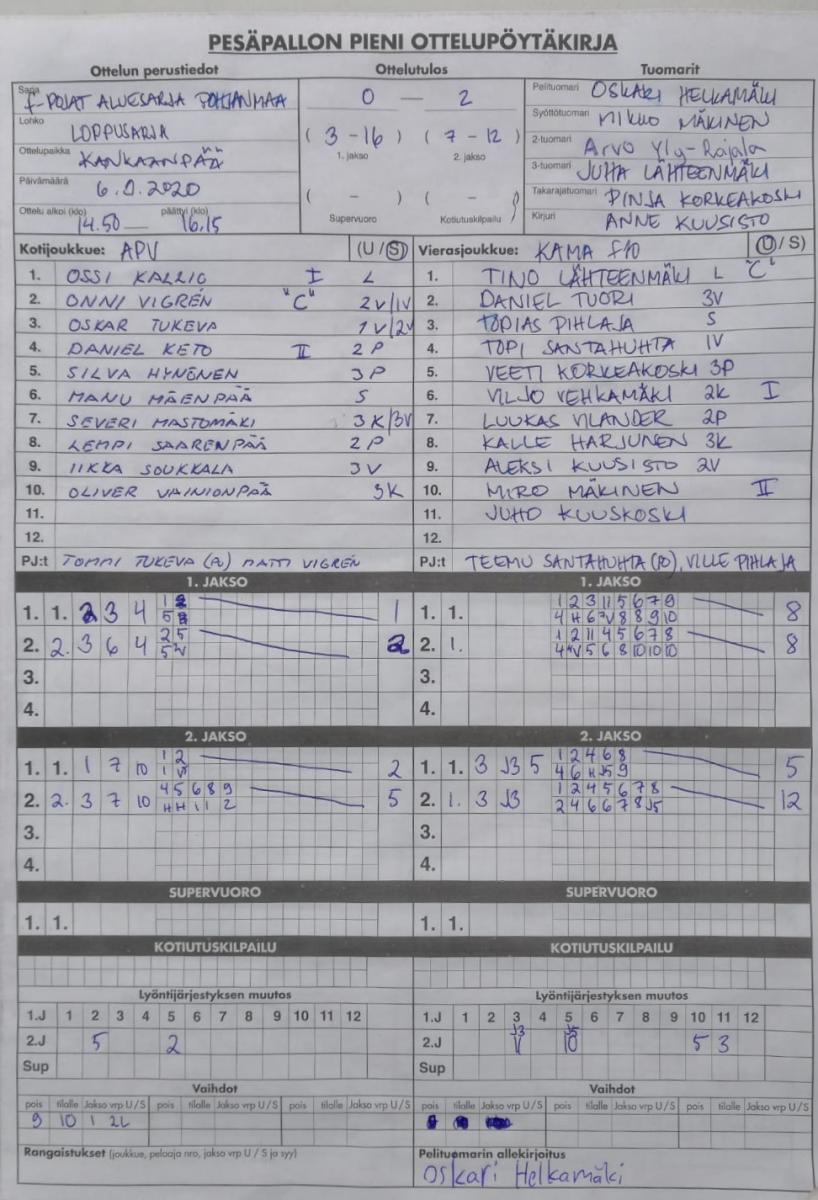 PESÄPALLON PIENI OTTELUPÖYTÄKIRJA
Ottelun perustiedot
Sarja F-POJAT ALUESARJA POHJANMAA
Lohko LOPPUSARJA
Ottelupaikka KANKAANPÄÄ
Päivämäärä 6.9.2020
Ottelu alkoi (klo) 14.50 — päättyi (klo) 16.15
Ottelutulos
0 — 2
( 3 - 16 ) ( 7 - 12 )
1. jakso 2. jakso
( - ) ( - )
Supervuoro Kotiutuskilpailu
Tuomarit
Pelituomari OSKARI HELKAMÄKI
Syöttötuomari MIKKO MÄKINEN
2-tuomari Arvo Yly-Rajala
3-tuomari JUHA LÄHTEENMÄKI
Takarajatuomari PINJA KORKEAKOSKI
Kirjuri ANNE KUUSISTO
Kotijoukkue: APV (U / S)
1. OSSI KALLIO I L
2. ONNI VIGRÉN "C" 2V/1V
3. OSKAR TUKEVA 1V/2V
4. DANIEL KETO II 2P
5. SILVA HYNÖNEN 3P
6. MANU MÄENPÄÄ S
7. SEVERI MASTOMÄKI 3K/3V
8. LEMPI SAARENPÄÄ 2P
9. IIKKA SOUKKALA 3V
10. OLIVER VAINIONPÄÄ 3K
11.
12.
PJ:t TOMMI TUKEVA (A) MATTI VIGRÉN
Vierasjoukkue: KAMA F10 (U / S)
1. TINO LÄHTEENMÄKI L "C"
2. DANIEL TUORI 3V
3. TOPIAS PIHLAJA S
4. TOPI SANTAHUHTA 1V
5. VEETI KORKEAKOSKI 3P
6. VILJO VEHKAMÄKI 2K I
7. LUUKAS VILANDER 2P
8. KALLE HARJUNEN 3K
9. ALEKSI KUUSISTO 2V
10. MIRO MÄKINEN II
11. JUHO KUUSKOSKI
12.
PJ:t TEEMU SANTAHUHTA (PO), VILLE PIHLAJA
1. JAKSO
1. 1. 2 3 4 1
2. 2. 3 6 4 2 5 2
3.
4.
1. JAKSO
1. 1. 1 2 3 11 5 6 7 9 8
4 H 6 7V 8 8 9 10
2. 1. 1 2 11 4 5 6 7 8 8
5 6 8 10 10 10
3.
4.
2. JAKSO
1. 1. 1 7 10 1 2 2
2. 2. 3 7 10 4 5 6 8 9 5
H H 1 1 2
3.
4.
2. JAKSO
1. 1. 3 J3 5 1 2 4 6 8 5
4 6 H J5 9
2. 1. 3 J3 1 2 4 5 6 7 8 12
2 4 6 6 7 8 J5
3.
4.
SUPERVUORO
1. 1.
SUPERVUORO
1. 1.
KOTIUTUSKILPAILU
KOTIUTUSKILPAILU
Lyöntijärjestyksen muutos
1.J 1 2 3 4 5 6 7 8 9 10 11 12
2.J 5 2
Sup
Lyöntijärjestyksen muutos
1.J 1 2 3 4 5 6 7 8 9 10 11 12
2.J J3 J5 10 5 3
Sup
Vaihdot
pois tilalle Jakso vrp U / S pois tilalle Jakso vrp U / S pois tilalle Jakso vrp U / S
9 10 1 2L
Vaihdot
pois tilalle Jakso vrp U / S pois tilalle Jakso vrp U / S pois tilalle Jakso vrp U / S
Rangaistukset (joukkue, pelaaja nro, jakso vrp U / S ja syy)
Pelituomarin allekirjoitus
Oskari Helkamäki